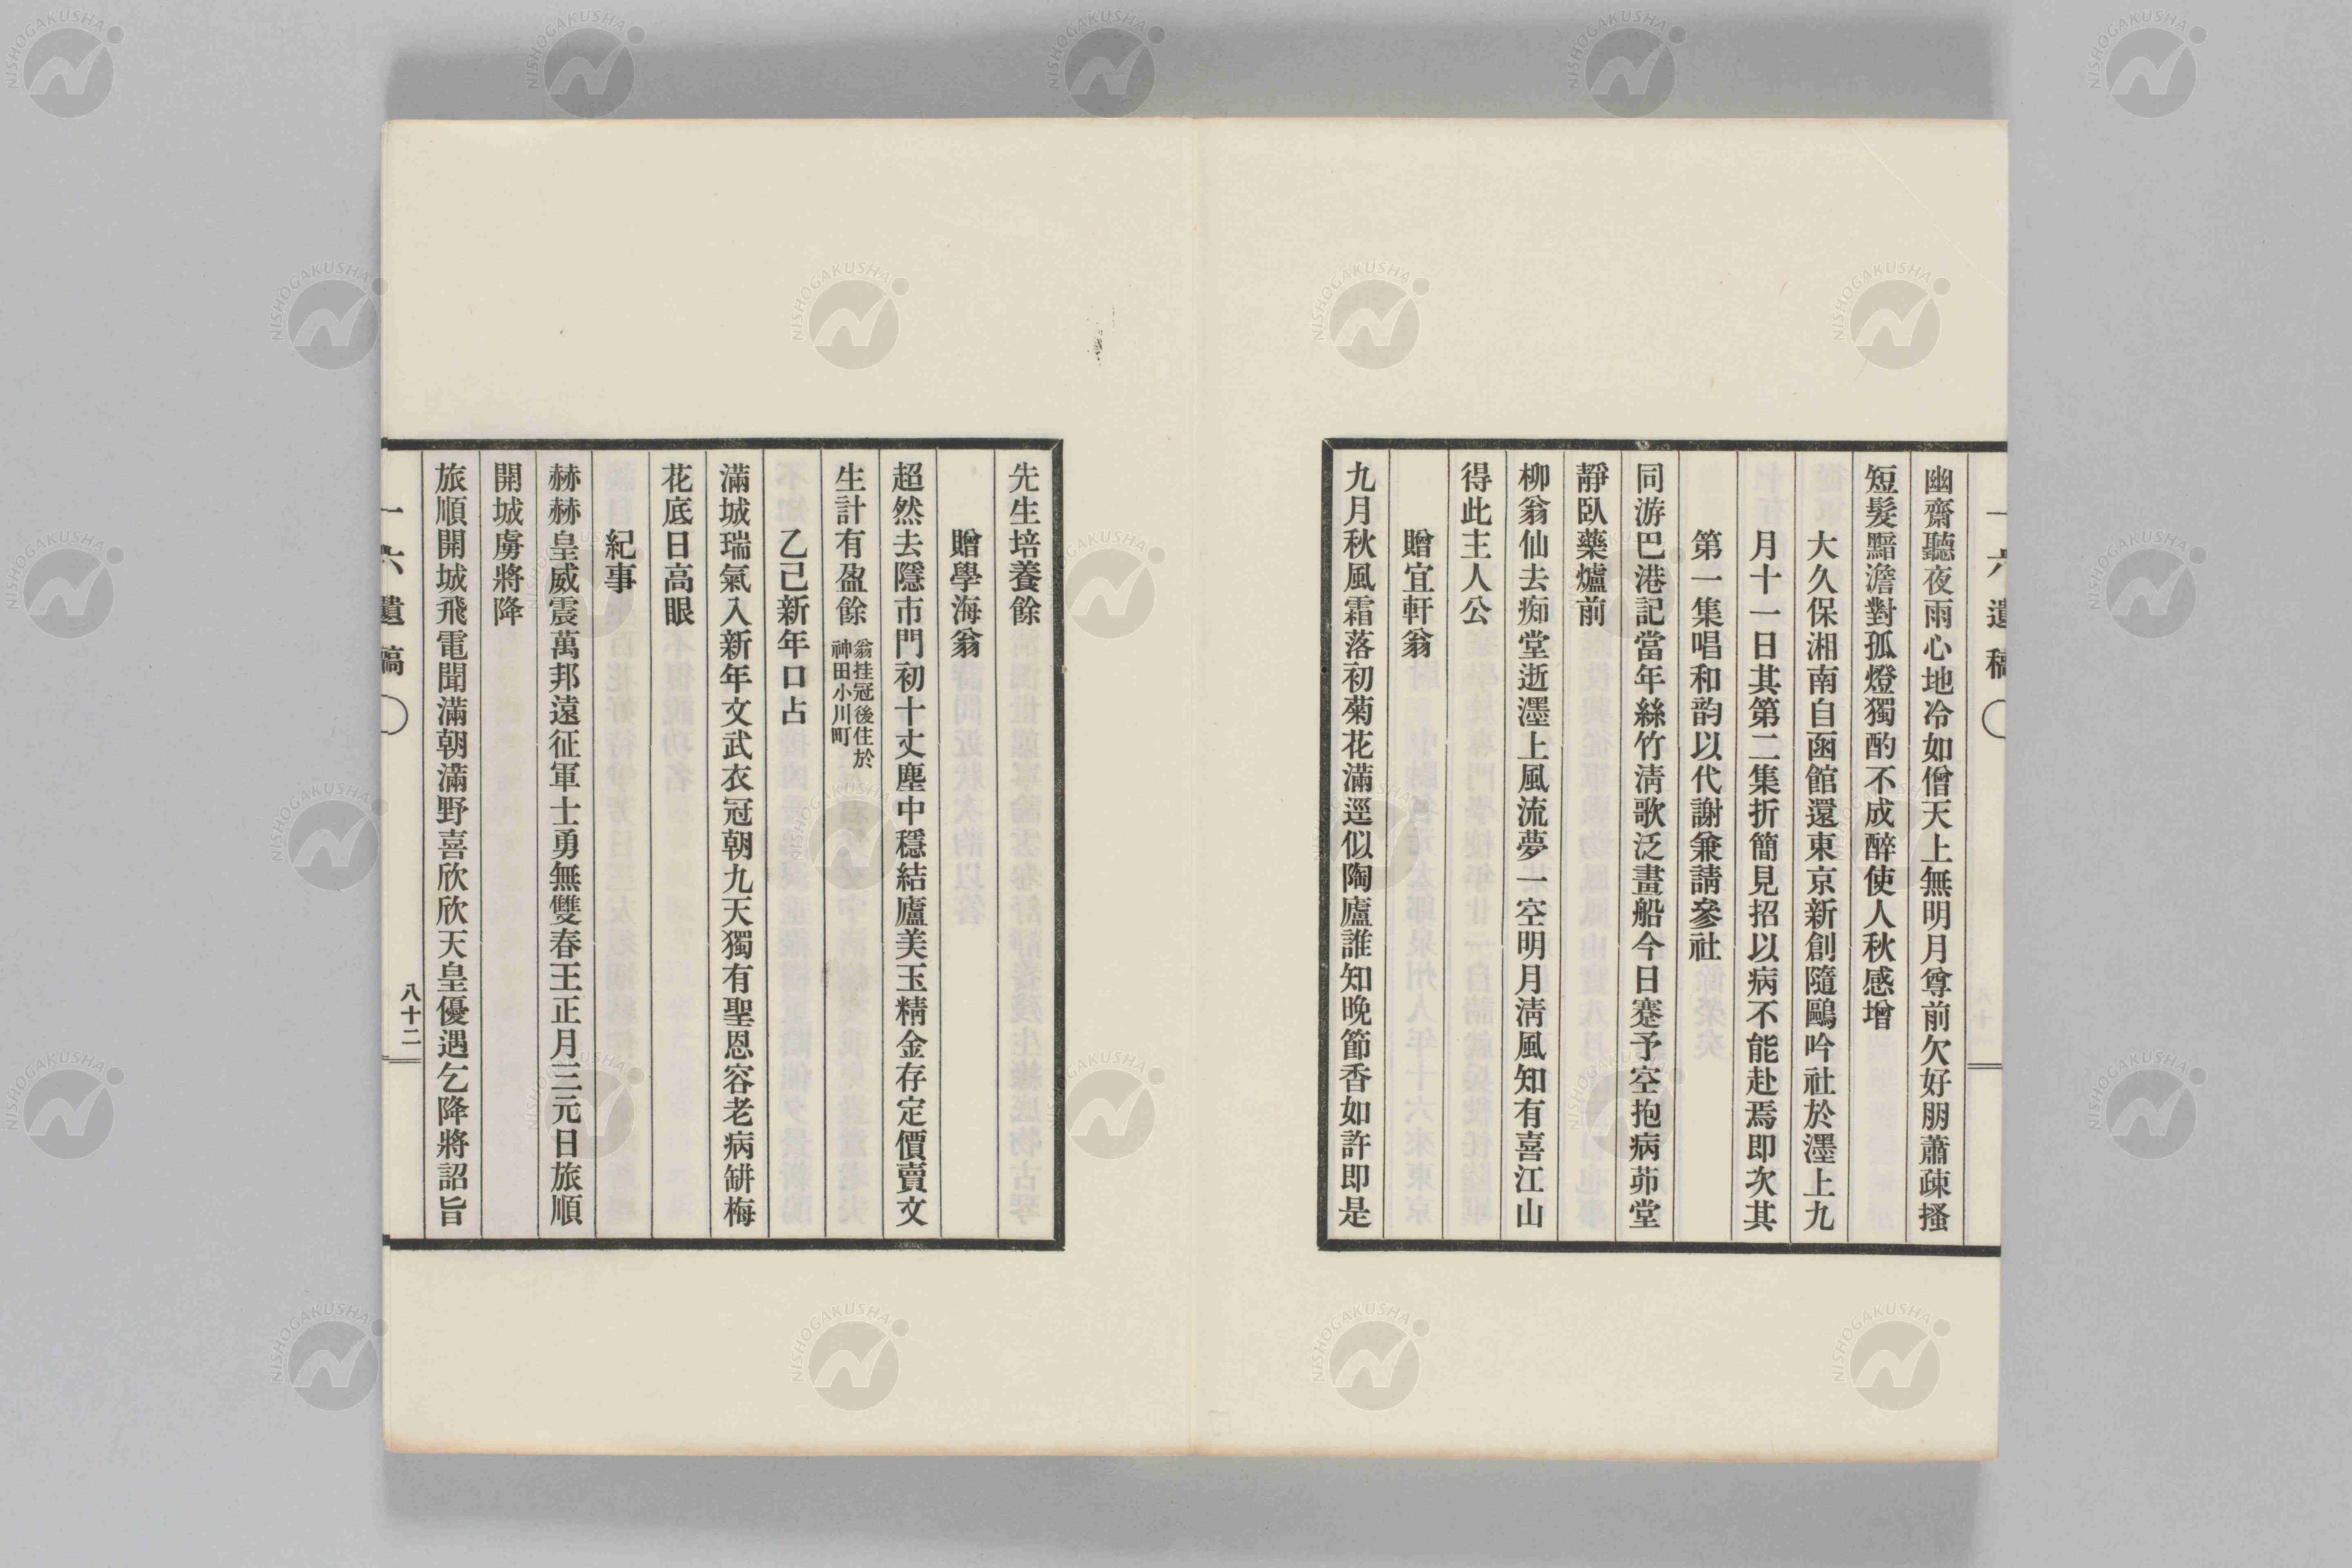 一六遺稿
幽齋聽夜雨心地冷如僧天上無明月尊前欠好朋蕭疎搔
短髮黯澹對孤燈獨酌不成醉使人秋感增
大久保湘南自函館還東京新創隨鷗吟社於墨上九
月十一日其第二集折簡見招以病不能赴焉即次其
第一集唱和韵以代謝兼請參社
同游巴港記當年絲竹淸歌泛畫船今日蹇予空抱病茆堂
靜臥藥爐前
柳翁仙去痴堂逝墨上風流夢一空明月淸風知有喜江山
得此主人公
贈宜軒翁
九月秋風霜落初菊花滿逕似陶廬誰知晚節香如許即是
先生培養餘
贈學海翁
超然去隱市門初十丈塵中穩結廬美玉精金存定價賣文
生計有盈餘 翁挂冠後住於
神田小川町
乙己新年口占
滿城瑞氣入新年文武衣冠朝九天獨有聖恩容老病缾梅
花底日高眠
紀事
赫赫皇威震萬邦遠征軍士勇無雙春王正月三元日旅順
開城虜將降
旅順開城飛電聞滿朝滿野喜欣欣天皇優遇乞降將詔旨
一六遺稿
八十二
NISHOGAKUSHA